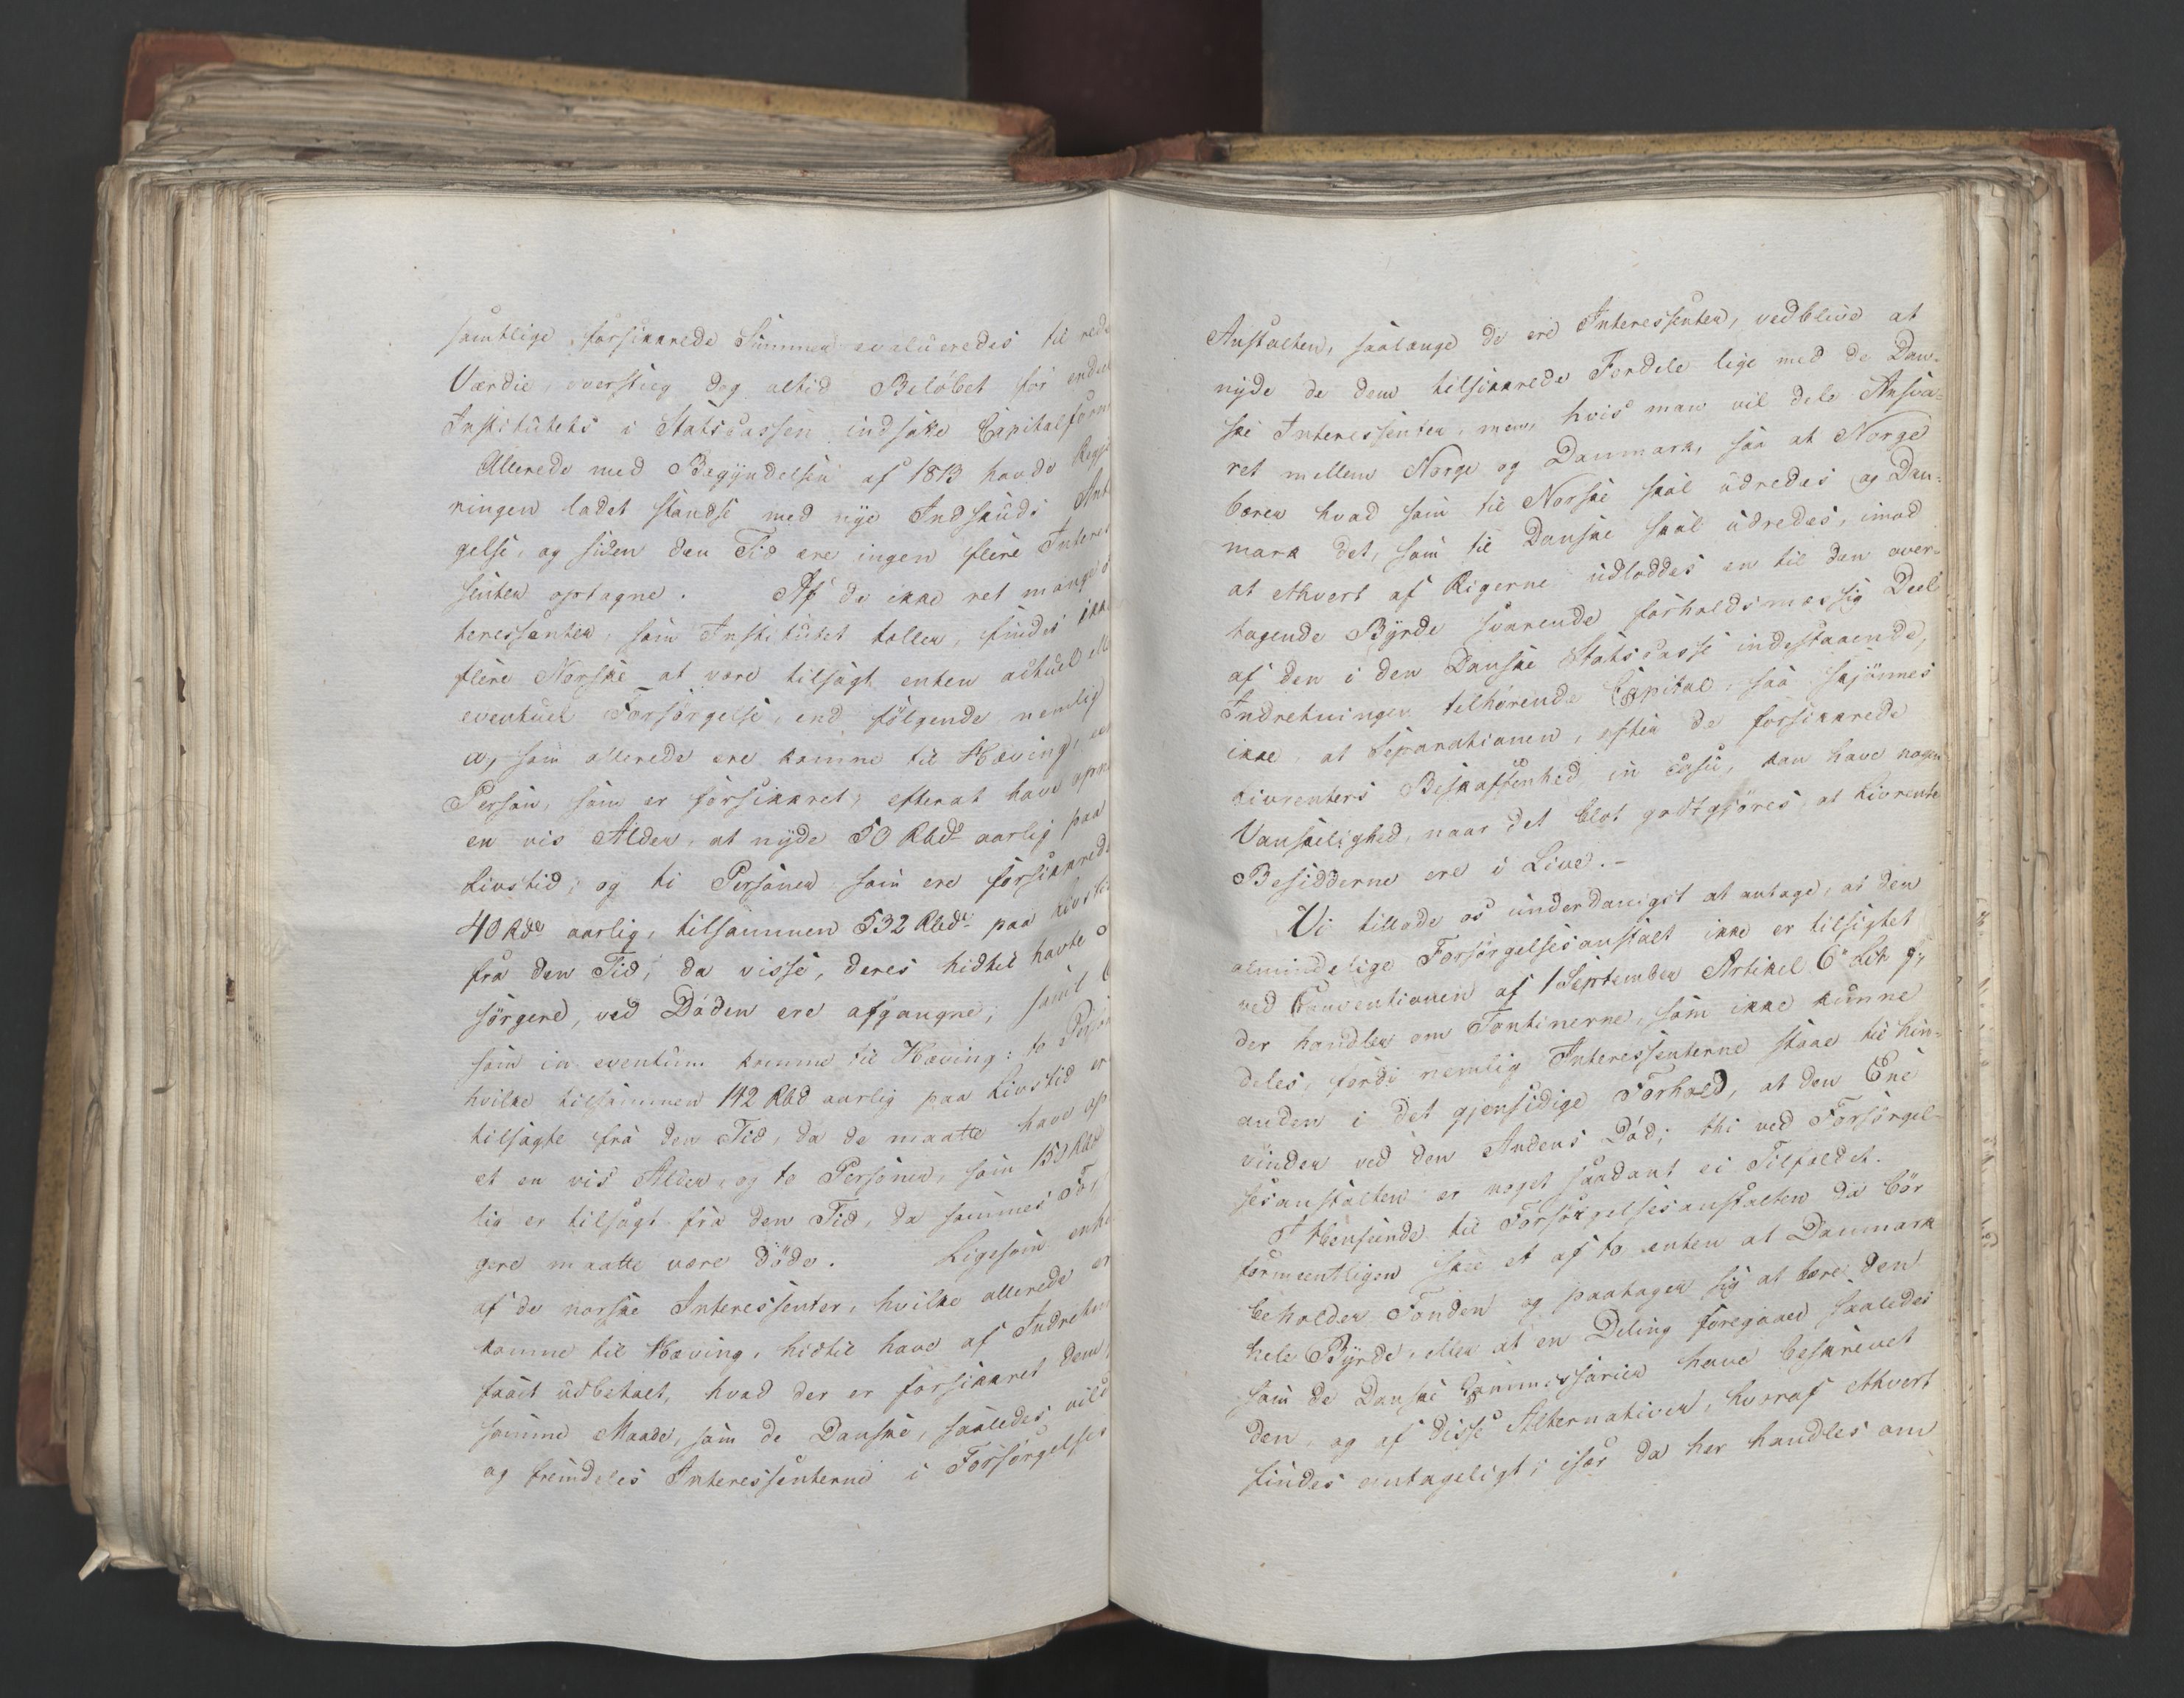 samtlige forsikkrede Summer evalueredes til rede
Værdie, oversteeg dog altid Beløbet for
Institutets i Statscassen indsatte Capitalform
Allerede med Begyndelsen af 1813 havde Regje
ringen ladet standse med nye Indskuds Ant
gelse, og siden den Tid ere ingen flere Interes
senter optagne. Af de ikke ret mange
teressenter, som Institutet tæller, findes ikke
flere Norske at være tilsagt enten actuel ell
eventuel Forsørgelse, end følgende nemlig
a, som allerede ere komne til Hæving,
Person, som er forsikkret, efterat have opna
en vis Alder, at nyde 50 Rbd aarlig paa
Livstid; og ti Personer som ere forsikkrede
40 Rdr aarlig, tilsammen 532 Rbdr paa Livstid
fra den Tid, da visse, deres hidtil havte
sørgere, ved Døden ere afgangne; samt
som in eventum komme til Hæving: to Person
hvilke tilsammen 142 Rbd aarlig paa Livstid er
tilsagte fra den Tid, da de maatte have op
et en vis Alder, og to Personer, som 150 Rbd
lig er tilsagt fra den Tid, da sammes For
gere maatte være døde. Ligesom
af de norske Interessenter, hvilke allerede er
komne til Hæving, hidtil have af Indretn
faaet udbetalt, hvad der er forsikkret dem,
samme Maade, som de Danske, saaledes vil
og fremdeles Interessenterne i Forsørgelses
Anstalten, saalænge de ere Interessenter, vedblive at
nyde de dem tilsikkrede Fordele lige med de Dan-
ske Interessenter, men, hvis man vil dele Ansva-
ret mellem Norge og Danmark, saa at Norge
bærer hvad som til Norske skal udredes og Dan-
mark det, som til Danske skal udredes, imod
at ethvert af Rigerne udloddes en til den over-
tagende Byrde svarende forholdsmæssig Deel
af den i den Danske Statscasse indestaaende,
Indretningen tilhørende Capital, saa skjønnes
ikke, at Separationen, efter de forsikkrede
Livrenters Beskaffenhed in casu, kan have nogen
Vanskelighed, naar det blot godtgjøres, at Livrente
Besidderne ere i Live.-
Vi tillade os underdanigst at antage, at den
almindelige Forsørgelsesanstalt ikke er tilsigtet
ved Conventionen af 1 September Artikel 6 Litr g,
der handler om Tontinerne, som ikke kunne
deles, fordi nemlig Interessenterne staae til hin-
anden i det gjensidige Forhold, at den Ene
vinder ved den Andens Død; thi ved Forsørgel-
sesanstalten er noget saadant ei Tilfældet.
I Henseende til Forsørgelsesanstalten da bør
formeentligen skee et af to enten at Danmark
beholder Fonden og paatager sig at bære den
hele Byrde, eller at en Deling foregaaer saaledes
som de Danske Commissarier have beskrevet
den, og af disse Alternativer, hvoraf ethvert
findes antageligt; især da her handles om